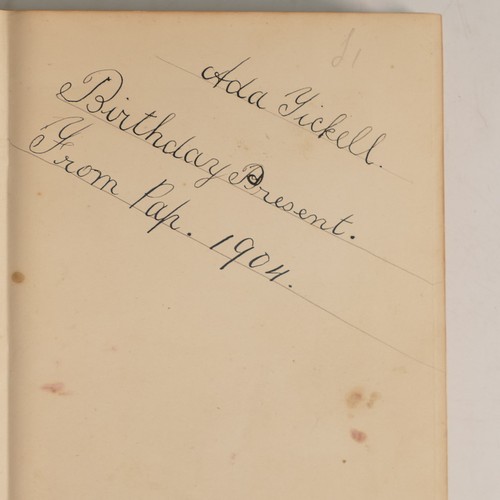 £1
Ada Tickell.
Birthday Present.
From Pap. 1904.